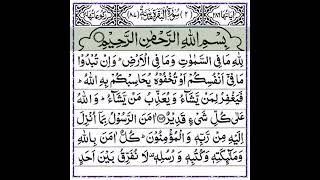 سُوْرَةُ الْبَقَرَةِ
بِسْمِ اللّٰهِ الرَّحْمٰنِ الرَّحِيْمِ
لِلّٰهِ مَا فِی السَّمٰوٰتِ وَمَا فِی الْاَرْضِ ؕ وَاِنْ تُبْدُوْا
مَا فِیْۤ اَنْفُسِكُمْ اَوْ تُخْفُوْهُ یُحَاسِبْكُمْ بِهِ اللّٰهُ ؕ
فَیَغْفِرُ لِمَنْ یَّشَآءُ وَیُعَذِّبُ مَنْ یَّشَآءُ ؕ وَاللّٰهُ
عَلٰی كُلِّ شَیْءٍ قَدِیْرٌ اٰمَنَ الرَّسُوْلُ بِمَاۤ اُنْزِلَ
اِلَیْهِ مِنْ رَّبِّهٖ وَالْمُؤْمِنُوْنَ ؕ كُلٌّ اٰمَنَ بِاللّٰهِ
وَمَلٰٓئِكَتِهٖ وَكُتُبِهٖ وَرُسُلِهٖ ۟ لَا نُفَرِّقُ بَیْنَ اَحَدٍ